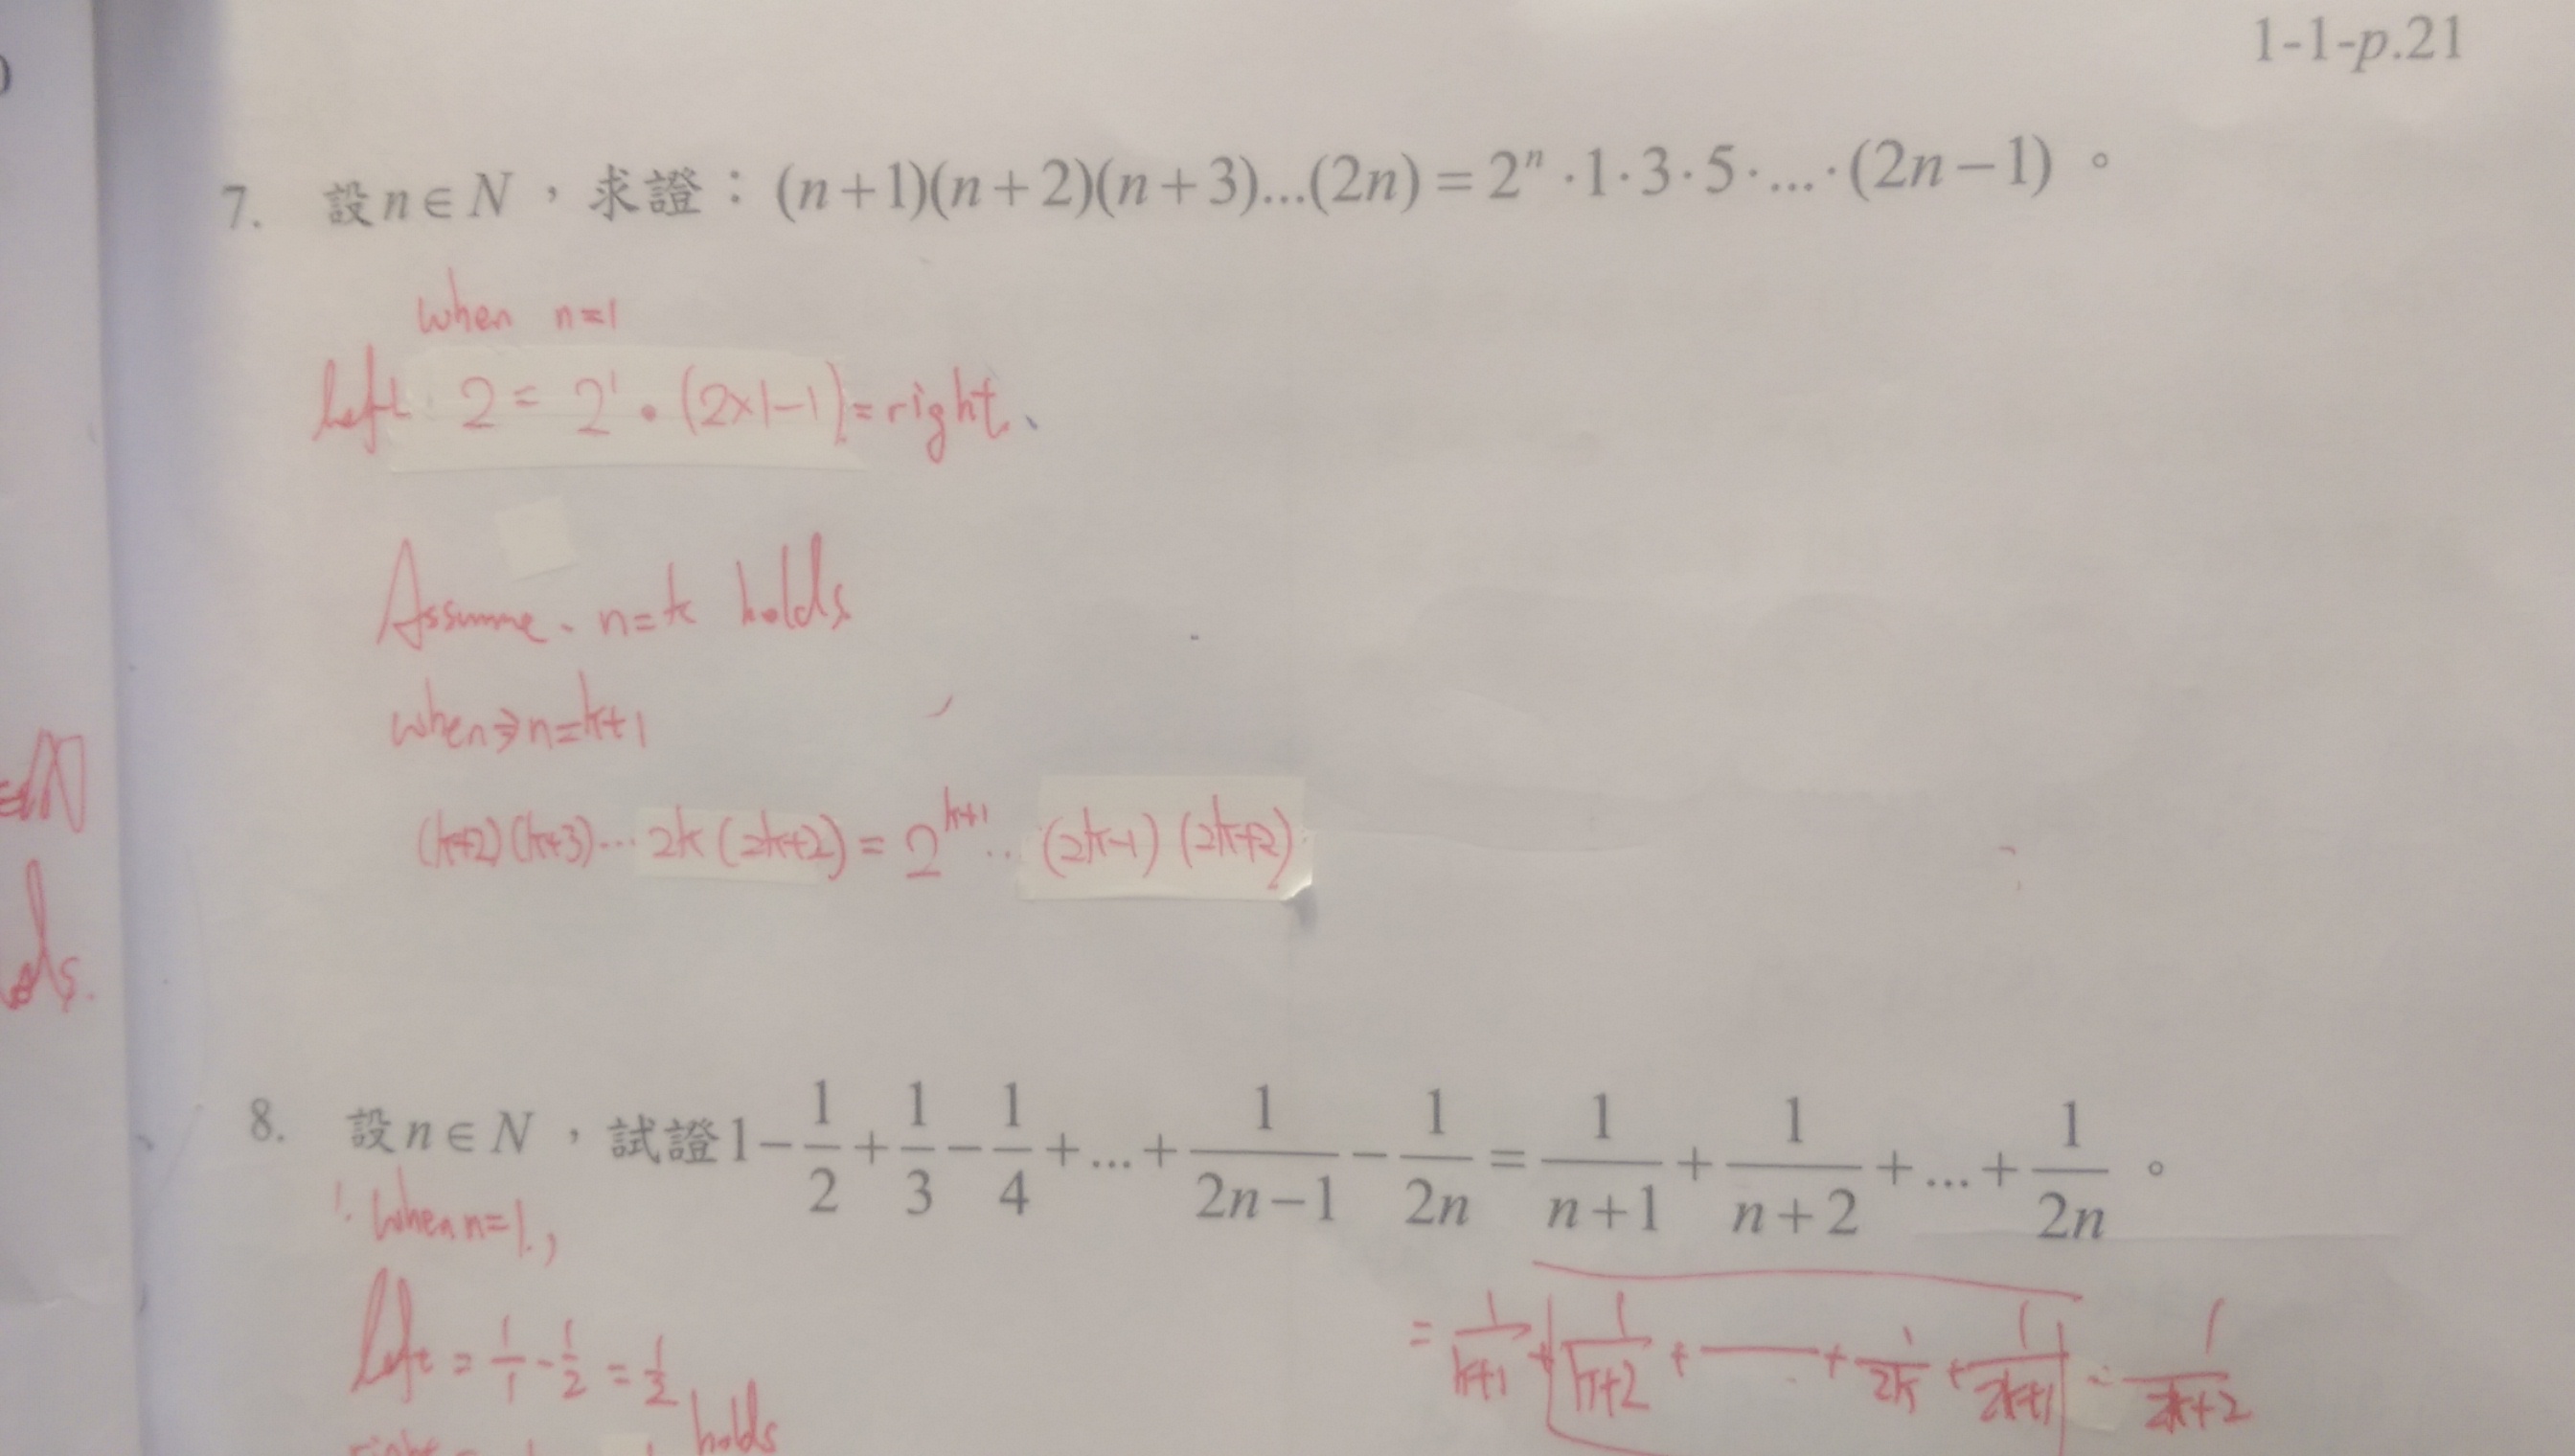 1-1-p.21
7. 設n∈N，求證：(n+1)(n+2)(n+3)...(2n)=2ⁿ·1·3·5·...·(2n−1)。
when n=1
left 2 = 2¹ · (2×1−1) = right.
Assume. n=k holds.
when⇒n=k+1
(k+2)(k+3)... 2k (2k+2) = 2^(k+1) .. (2k−1) (2k+2)
8. 設n∈N，試證1−1/2+1/3−1/4+...+1/(2n−1)−1/(2n)=1/(n+1)+1/(n+2)+...+1/(2n)。
1. When n=1.,
left = 1/1 - 1/2 = 1/2
= 1/(k+1) + 1/(k+2) + — + 1/2k + 1/(2k+1) - 1/(2k+2)
holds